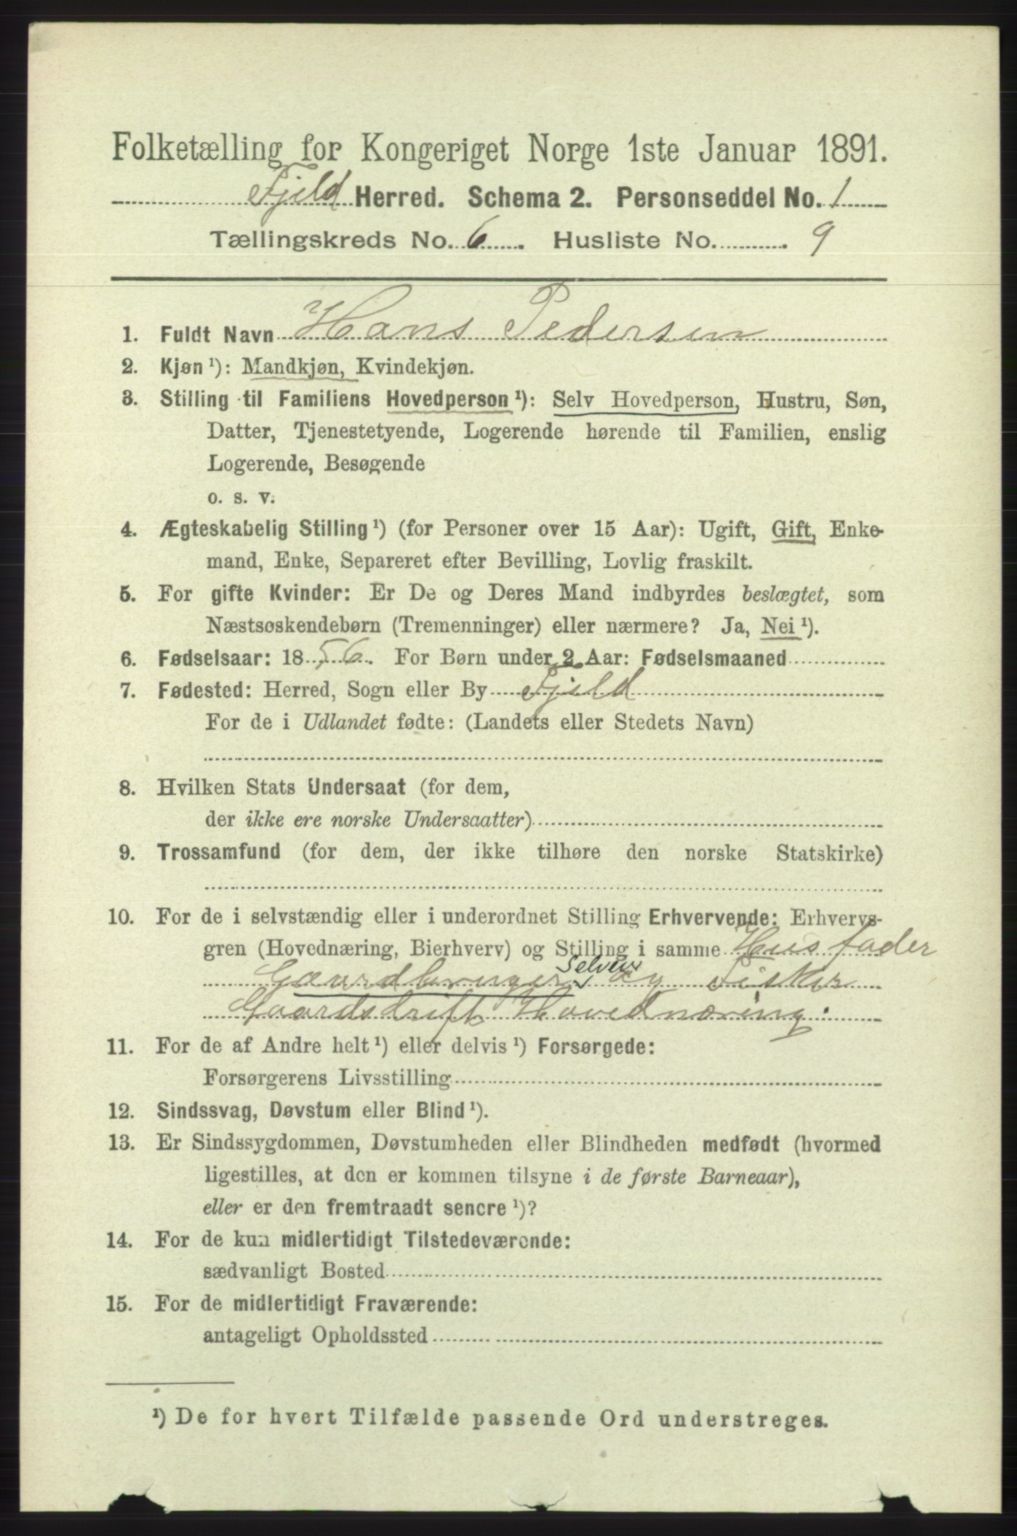 Folketælling for Kongeriget Norge 1ste Januar 1891.
Fjeld Herred. Schema 2. Personseddel No. 1
Tællingskreds No. 6. Husliste No. 9
1. Fuldt Navn Hans Pedersen
2. Kjøn ¹): Mandkjøn, Kvindekjøn.
3. Stilling til Familiens Hovedperson ¹): Selv Hovedperson, Hustru, Søn,
Datter, Tjenestetyende, Logerende hørende til Familien, enslig
Logerende, Besøgende
o. s. v.
4. Ægteskabelig Stilling ¹) (for Personer over 15 Aar): Ugift, Gift, Enke-
mand, Enke, Separeret efter Bevilling, Lovlig fraskilt.
5. For gifte Kvinder: Er De og Deres Mand indbyrdes beslægtet, som
Næstsøskendebørn (Tremenninger) eller nærmere? Ja, Nei ¹).
6. Fødselsaar: 1856. For Børn under 2 Aar: Fødselsmaaned
7. Fødested: Herred, Sogn eller By Fjeld
For de i Udlandet fødte: (Landets eller Stedets Navn)
8. Hvilken Stats Undersaat (for dem,
der ikke ere norske Undersaatter)
9. Trossamfund (for dem, der ikke tilhøre den norske Statskirke)
10. For de i selvstændig eller i underordnet Stilling Erhvervende: Erhvervs-
gren (Hovednæring, Bierhverv) og Stilling i samme Husfader
Gaardbruger Selveier og Fisker
Gaardsdrift Hovednæring.
11. For de af Andre helt ¹) eller delvis ¹) Forsørgede:
Forsørgerens Livsstilling
12. Sindssvag, Døvstum eller Blind ¹).
13. Er Sindssygdommen, Døvstumheden eller Blindheden medfødt (hvormed
ligestilles, at den er kommen tilsyne i de første Barneaar),
eller er den fremtraadt senere ¹)?
14. For de kun midlertidigt Tilstedeværende:
sædvanligt Bosted
15. For de midlertidigt Fraværende:
antageligt Opholdssted
¹) De for hvert Tilfælde passende Ord understreges.